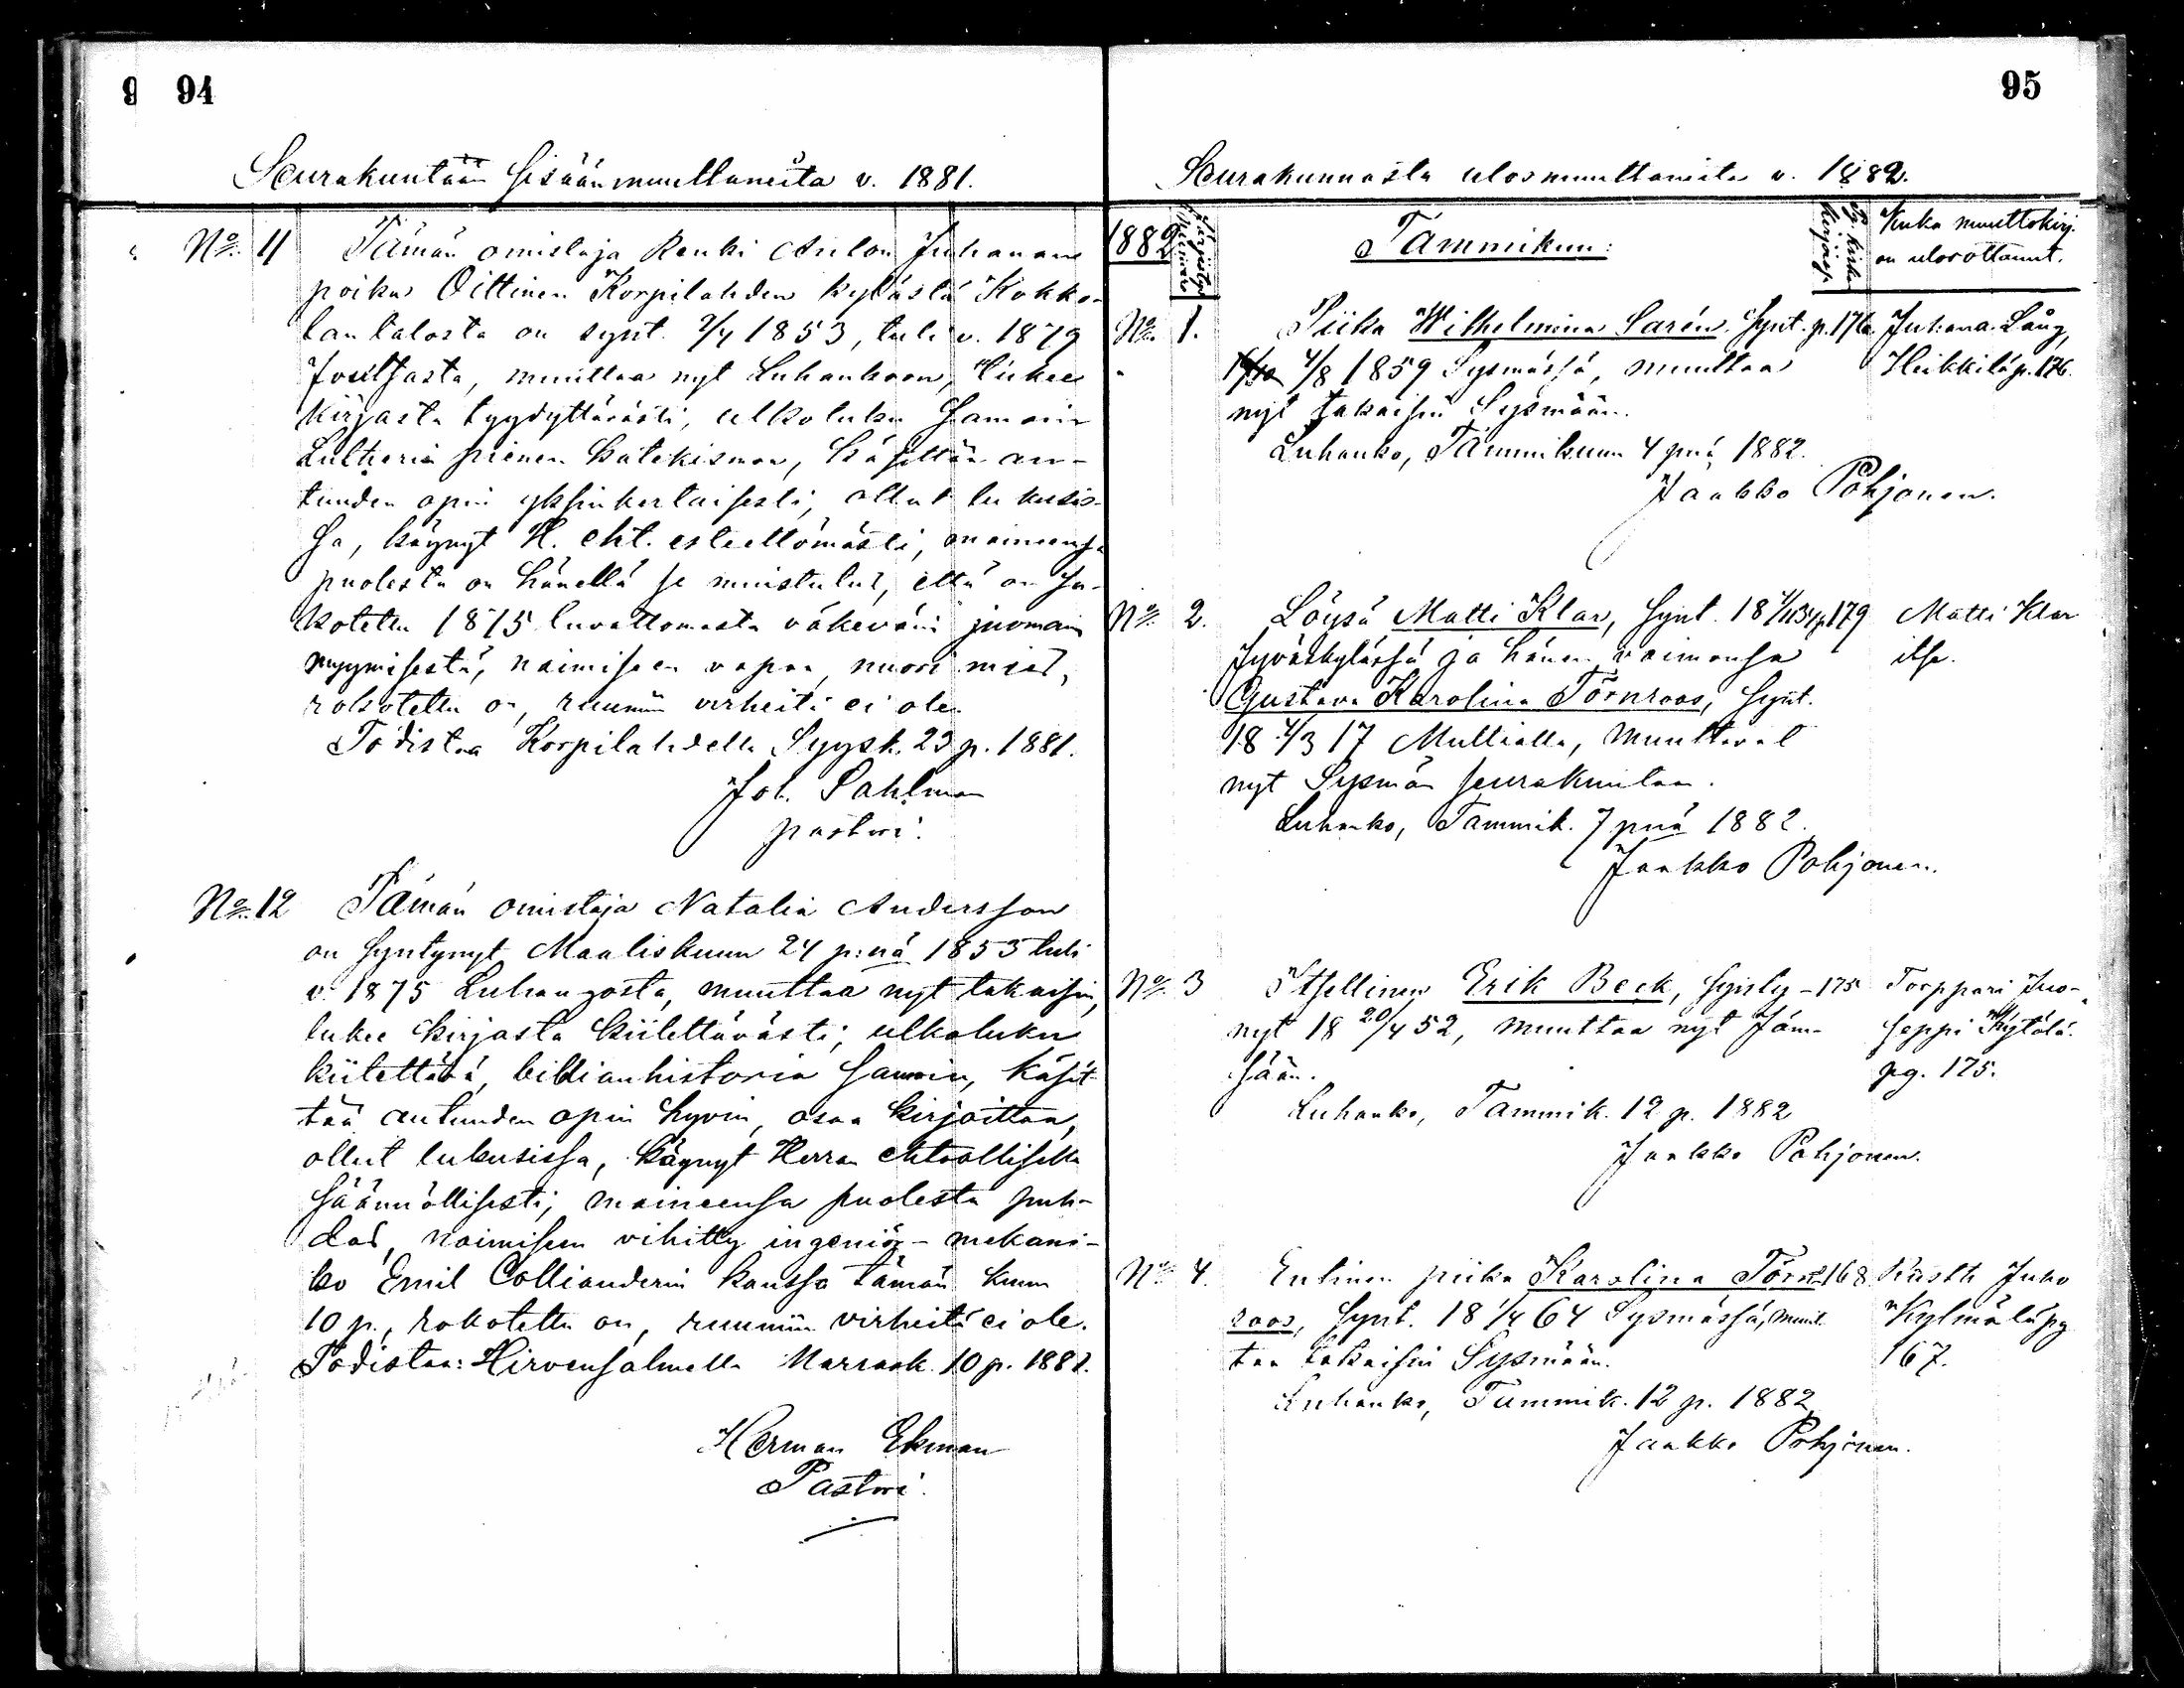 94
Seurakuntaan sisäänmuuttaneita v. 1881.
No 11 Tämän omistaja Renki Anton Juhanan
poika Oittinen Korpilahden kylästä Kokko-
lan talosta on synt. 2/4 1853, tuli v. 1879
Joutsasta, muuttaa nyt Luhankoon, lukee
kirjasta tyydyttävästi, ulkoluku samoin
Lutherin pienen katekismon, käsittää au-
tuuden opin yksinkertaisesti, ollut lukusis-
sa, käynyt H. eht. esteettömästi, maineensa
puolesta on hänellä se muistutus, että on sa-
kotettu 1875 luvattomasta väkeväin juomain
myymisestä, naimiseen vapaa, nuori mies,
rokotettu on, ruumiin virheitä ei ole.
Todistaa Korpilahdella Syysk. 23 p. 1881.
Joh. Sahlman
pastori.
No 12 Tämän omistaja Natalia Andersson
on syntynyt Maaliskuun 24 p:nä 1853 tuli
v. 1875 Luhangosta, muuttaa nyt takaisin,
lukee kirjasta kiitettävästi; ulkoluku
kiitettävä, biblianhistoria samoin, käsit-
tää autuuden opin hyvin, osaa kirjoittaa,
ollut lukusissa, käynyt Herran ehtoollisella
säännöllisesti; maineensa puolesta puh-
das, naimiseen vihitty ingeniör-mekani-
ko Emil Collianderin kanssa tämän kuun
10 p., rokotettu on, ruumiin virheitä ei ole.
Todistaa: Hirvensalmella Marrask. 10 p. 1881.
Herman Ekman
Pastori.
95
Seurakunnasta ulosmuuttaneita v. 1882.
1882 Tammikuu: Kuka muuttokirj. on ulosottanut.
No 1. Piika Wilhelmina Sarén, Synt. p. 176 Juhana Lång,
4/8 1859 Sysmässä, muuttaa Heikkilä p. 176.
nyt takaisin Sysmään.
Luhanko, Tammikuun 4 pnä 1882.
Jaakko Pohjonen.
No 2. Löysä Matti Klar, synt. p. 179 Matti Klar
Jyväskylässä ja hänen vaimonsa itse.
Gustava Karolina Törnroos, synt.
18 4/3 17 Multialla, muuttavat
nyt Sysmän seurakuntaan.
Luhanko, Tammik. 7 pnä 1882.
Jaakko Pohjonen.
No 3 Itsellinen Erik Beck, synty- 175 Torppari Juo-
nyt 18 20/4 52, muuttaa nyt Jäm- seppi Kytölä
sään. pg. 175.
Luhanko, Tammik. 12 p. 1882
Jaakko Pohjonen.
No 4. Entinen piika Karolina Törn- 168 Rusth. Juho
roos, synt. 18 1/4 64 Sysmässä, muut- Kylmälä pg
taa takaisin Sysmään. 167.
Luhanko, Tammik. 12 p. 1882
Jaakko Pohjonen.